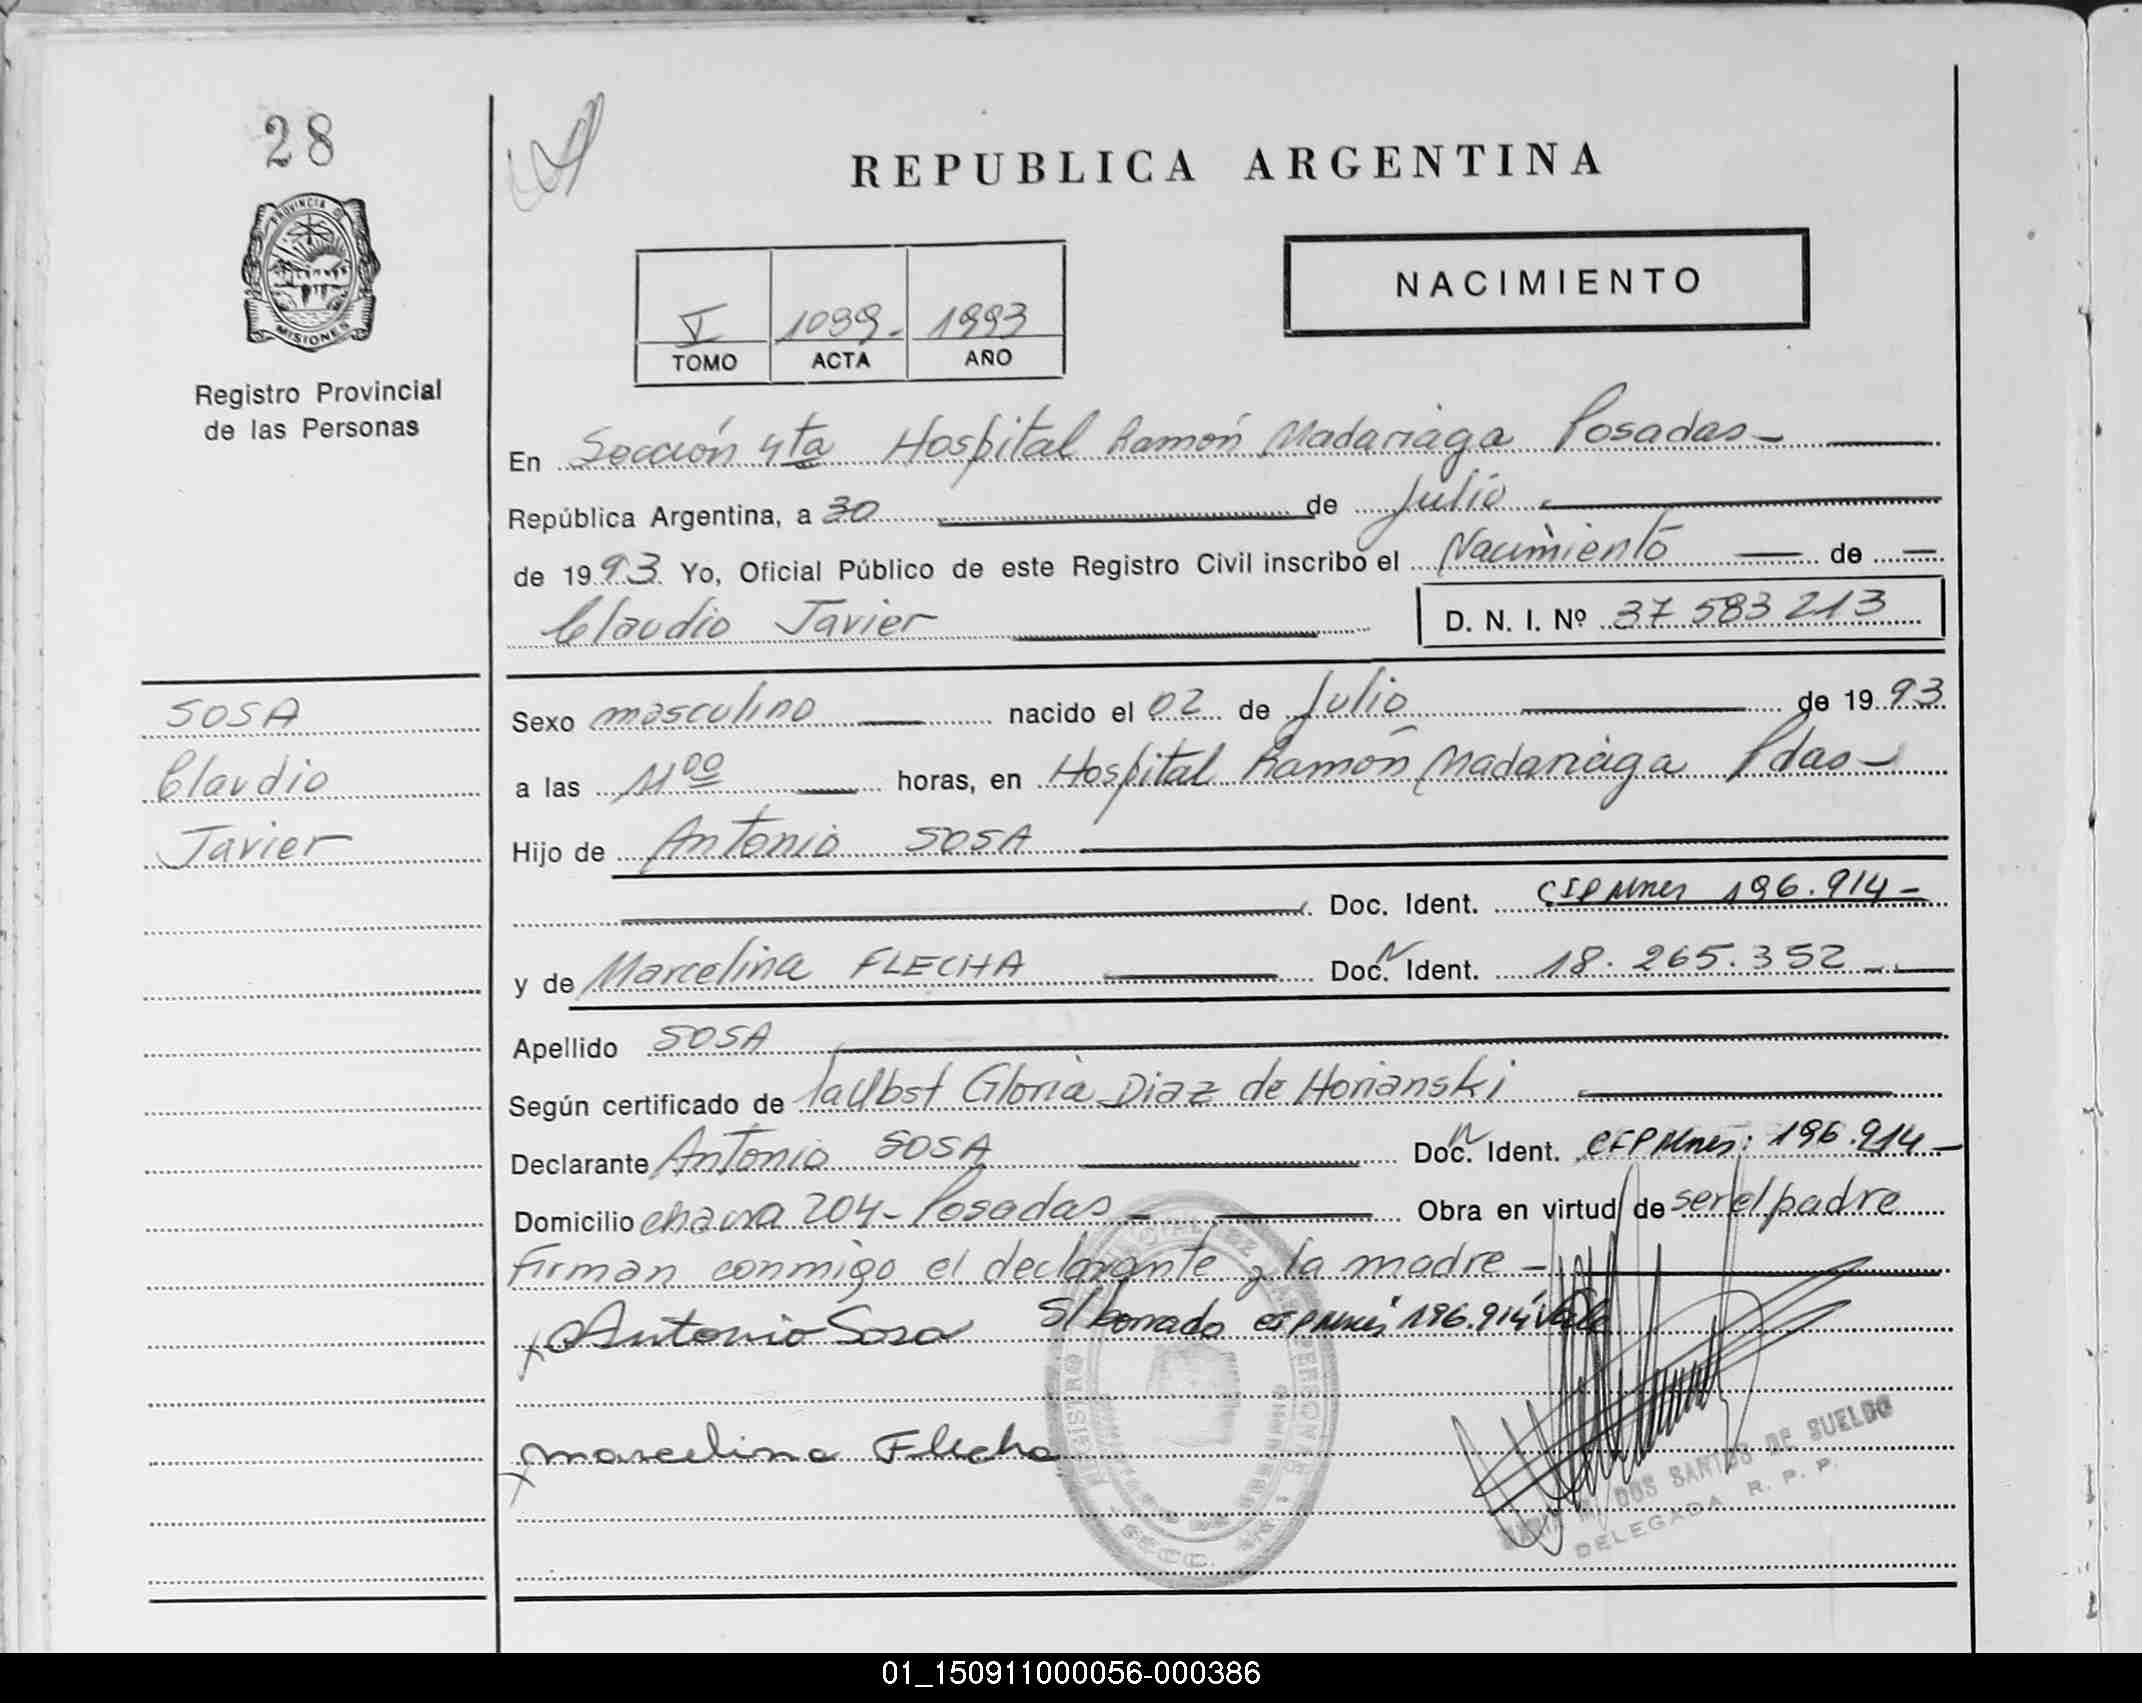 28
PROVINCIA DE
MISIONES
Registro Provincial
de las Personas
REPUBLICA ARGENTINA
NACIMIENTO
V 1099- 1993
TOMO ACTA AÑO
En Sección 4ta Hospital Ramón Madariaga Posadas-
República Argentina, a 30 de Julio
de 1993 Yo, Oficial Público de este Registro Civil inscribo el Nacimiento de
Claudio Javier D. N. I. Nº 37 583 213
SOSA
Claudio
Javier
Sexo masculino nacido el 02 de Julio de 1993
a las 11 00 horas, en Hospital Ramón Madariaga Pdas-
Hijo de Antonio SOSA
Doc. Ident. CIP Mnes 196.914-
y de Marcelina FLECHA Doc. N Ident. 18.265.352
Apellido SOSA
Según certificado de la Obst Gloria Diaz de Horianski
Declarante Antonio SOSA Doc. N Ident. CIP Mnes: 196.914-
Domicilio chacra 204- Posadas- Obra en virtud de ser el padre
Firman conmigo el declarante y la madre-
x Antonio Sosa S/ borrado CIP Mnes 196.914 Vale
x marcelina Flecha
DOS SANTOS DE SUELDO
DELEGADA R. P. P.
01_150911000056-000386